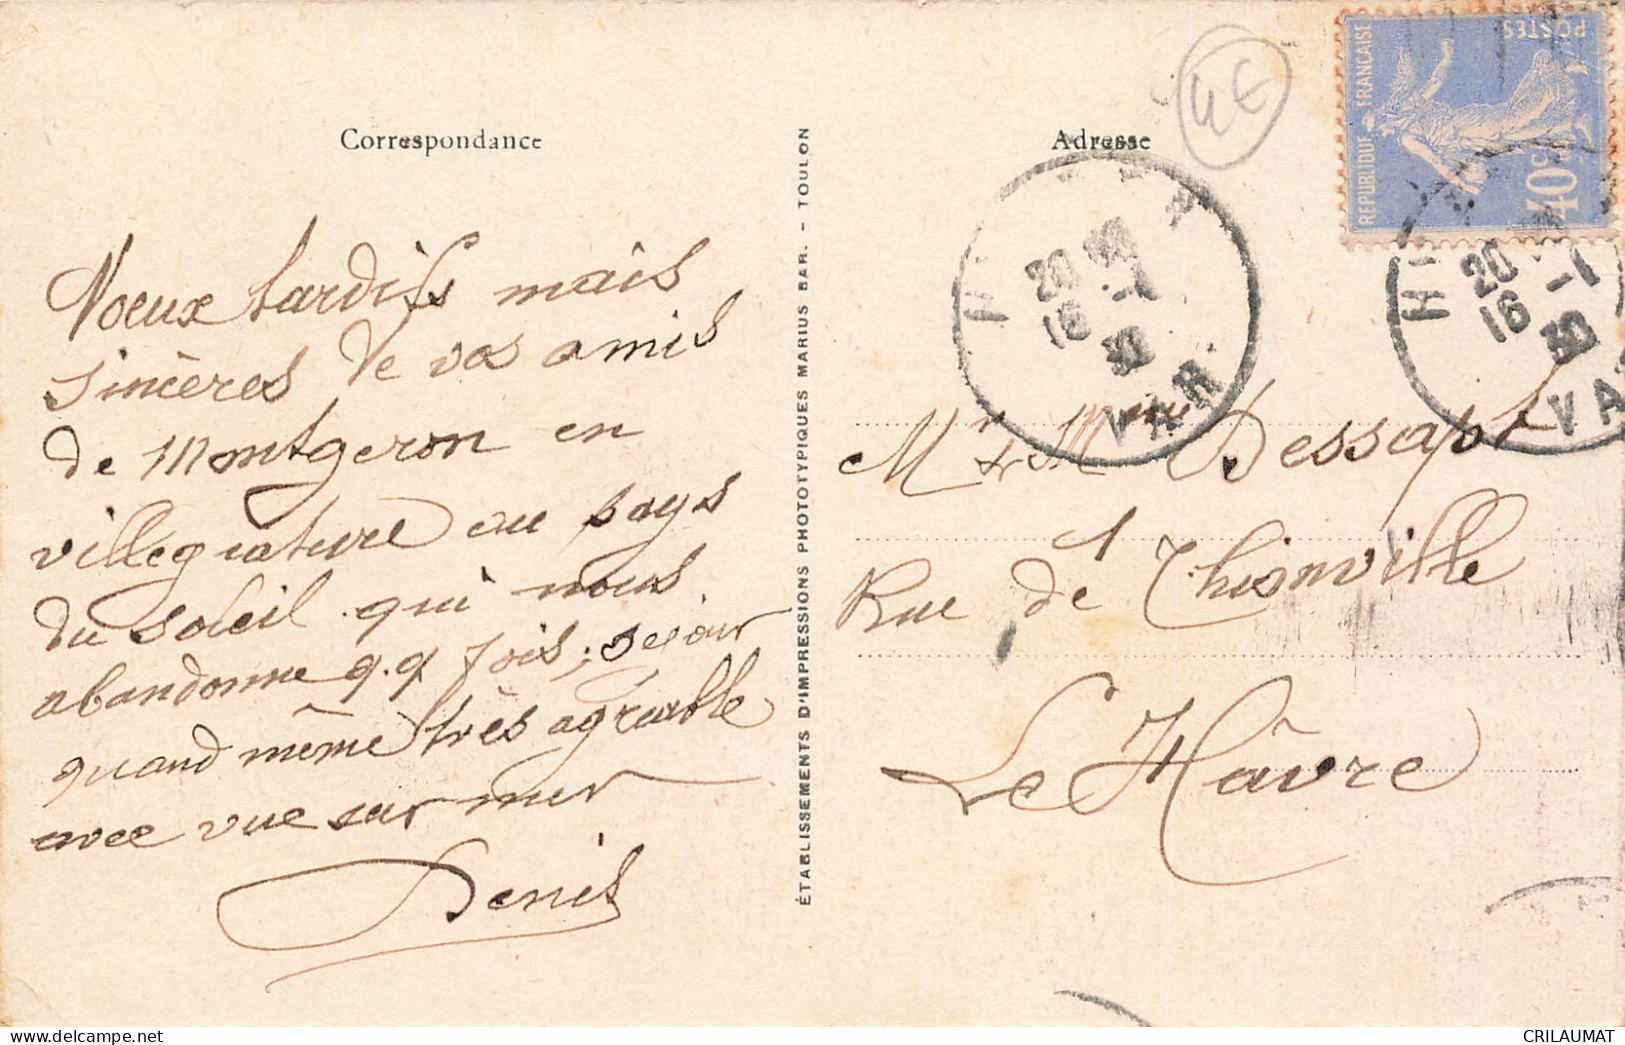 Correspondance
Voeux tardifs mais
sincères de vos amis
de Montgeron en
villegiature au pays
du soleil qui nous
abandonne q.q fois; sejour
quand même très agréable
avec vue sur mer
Denis
ÉTABLISSEMENTS D'IMPRESSIONS PHOTOTYPIQUES MARIUS BAR. - TOULON
Adresse
4€
RÉPUBLIQUE FRANÇAISE
POSTES
40c
20 30
16 -1
30
VAR
20
16 -1
30
VA
Mr & Mme Dessapt
1
Rue de Thionville
Le Hâvre
www.delcampe.net
CRILAUMAT